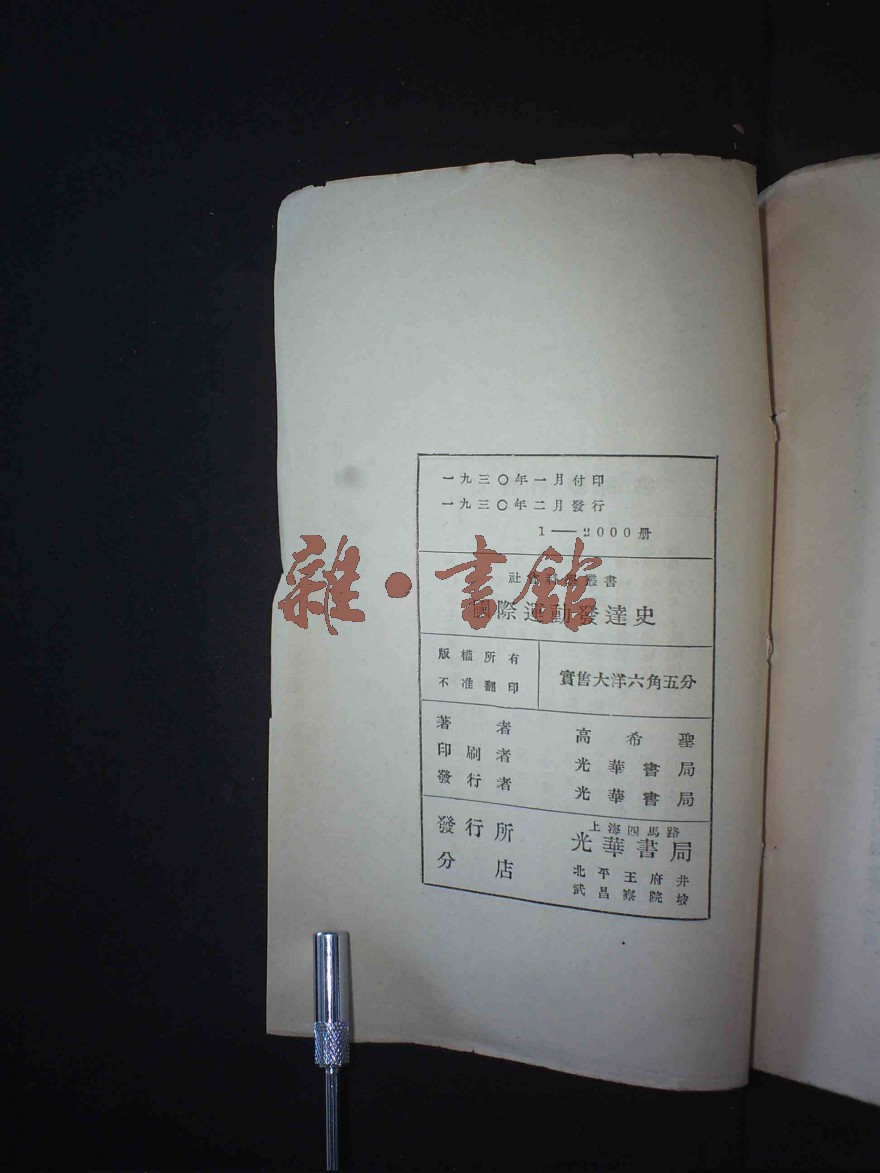 一九三〇年一月付印
一九三〇年二月發行
1—2000册
社會科學叢書
國際運動發達史
版權所有
不准翻印
實售大洋六角五分
著者 高希聖
印刷者 光華書局
發行者 光華書局
發行所 上海四馬路
光華書局
分店 北平王府井
武昌察院坡
雜·書館